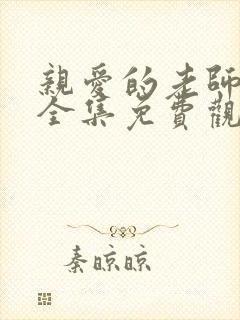 親愛的老師
全集免費觀
秦晾晾